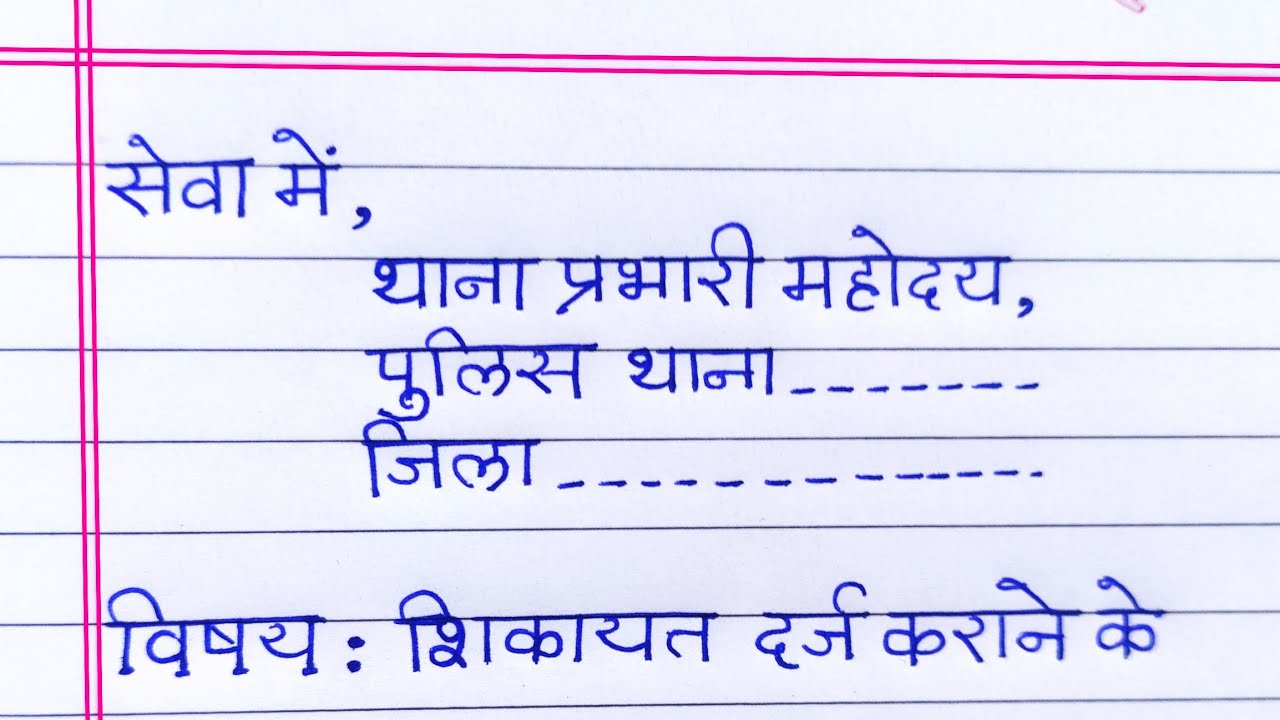 सेवा में,
थाना प्रभारी महोदय,
पुलिस थाना -------
जिला -------------
विषय : शिकायत दर्ज कराने के